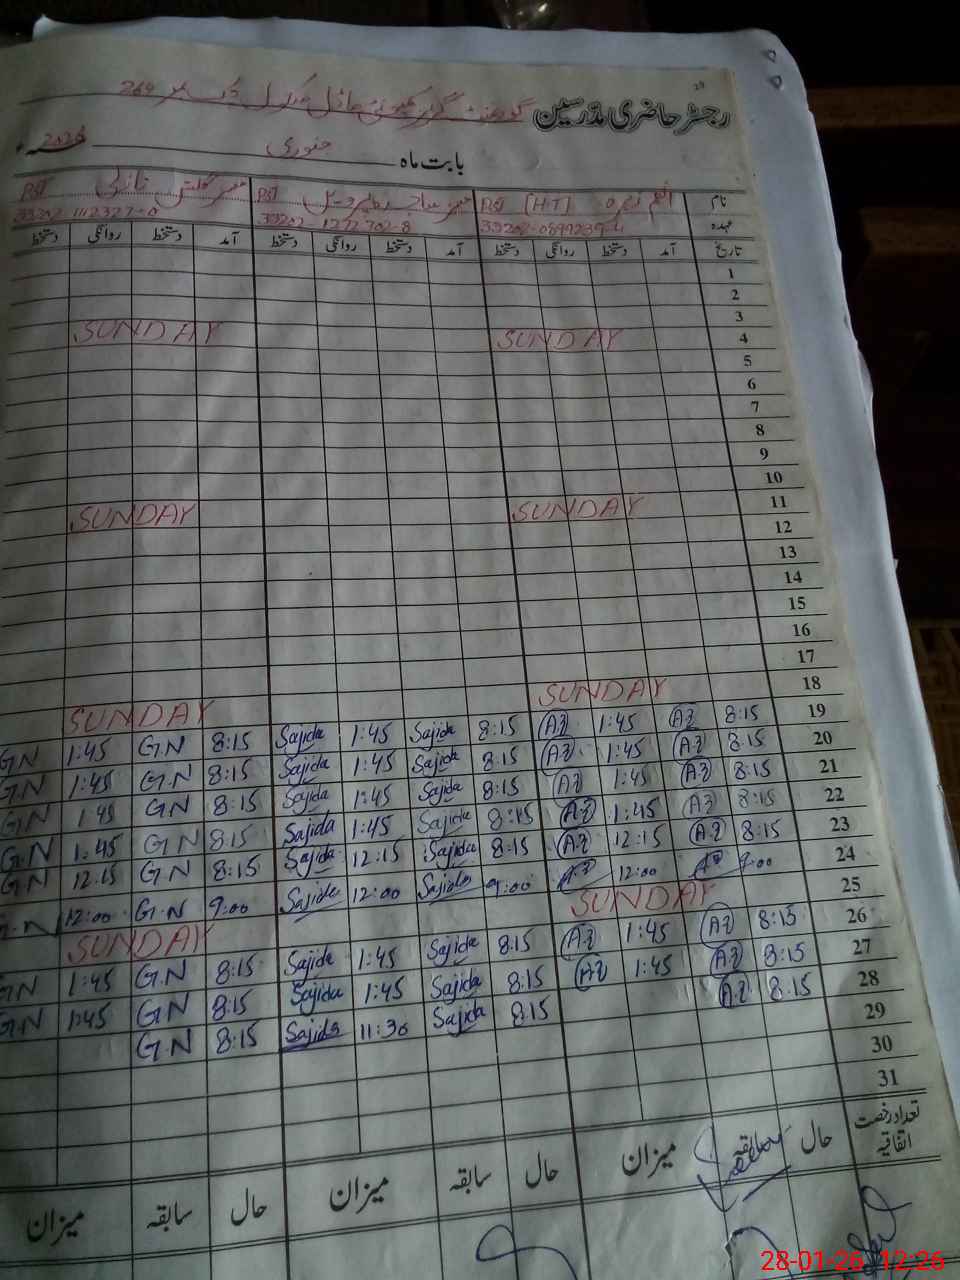 29
رجسٹر حاضری مدرسین گورنمنٹ گرلز کمیونٹی ماڈل سکول چک نمبر 269
بابت ماہ جنوری 2026ء
نام [H.T] PST PST PST
عہدہ 33202-1272702-8 33202-1112327-0
تاریخ آمد دستخط روانگی دستخط آمد دستخط روانگی دستخط آمد دستخط روانگی دستخط
1
2
3
4 SUNDAY SUNDAY
5
6
7
8
9
10
11 SUNDAY SUNDAY
12
13
14
15
16
17
18 SUNDAY SUNDAY
19 8:15 A.Z 1:45 A.Z 8:15 Sajida 1:45 Sajida 8:15 G.N 1:45 G.N
20 8:15 A.Z 1:45 A.Z 8:15 Sajida 1:45 Sajida 8:15 G.N 1:45 G.N
21 8:15 A.Z 1:45 A.Z 8:15 Sajida 1:45 Sajida 8:15 G.N 1:45 G.N
22 8:15 A.Z 1:45 A.Z 8:15 Sajida 1:45 Sajida 8:15 G.N 1:45 G.N
23 8:15 A.Z 12:15 A.Z 8:15 Sajida 12:15 Sajida 8:15 G.N 12:15 G.N
24 9:00 A.Z 12:00 A.Z 9:00 Sajida 12:00 Sajida 9:00 G.N 12:00 G.N
25 SUNDAY SUNDAY
26 8:15 A.Z 1:45 A.Z 8:15 Sajida 1:45 Sajida 8:15 G.N 1:45 G.N
27 8:15 A.Z 1:45 A.Z 8:15 Sajida 1:45 Sajida 8:15 G.N 1:45 G.N
28 8:15 A.Z 8:15 Sajida 11:30 Sajida 8:15 G.N
29
30
31
تعداد رخصت اتفاقیہ حال سابقہ میزان حال سابقہ میزان حال سابقہ میزان
28-01-26 12:26